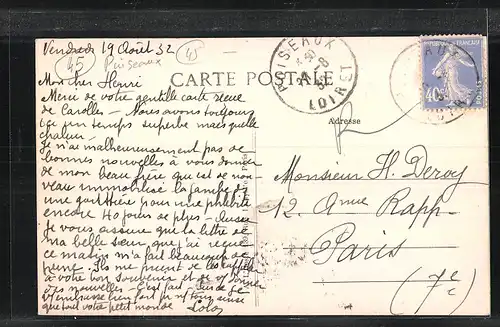 Vendredi 19 Août 32
45
Puiseaux
45
PUISEAUX
LOIRET
CARTE POSTALE
Adresse
Mon cher Henri
Merci de votre gentille carte reçue
de Carolles - Nous avons toujours
ici un temps superbe mais quelle
chaleur -
Je n'ai malheureusement pas de
bonnes nouvelles à vous donner
de mon beau frère qui est de nou-
veau immobilisé la jambe ds
une gouttière pour une phlébite
encore 40 jours de plus - Aussi
je vous assure que la lettre de
ma belle sœur que j'ai reçue
ce matin m'a fait beaucoup de
peine - Ils me prient de les rappeler
à votre bon souvenir et de vs donner
des nouvelles - C'est fait -
vs embrasse bien fort
que tout votre petit monde
Monsieur H. Deroy
12, Anne Rapp.
Paris
(7e)
40